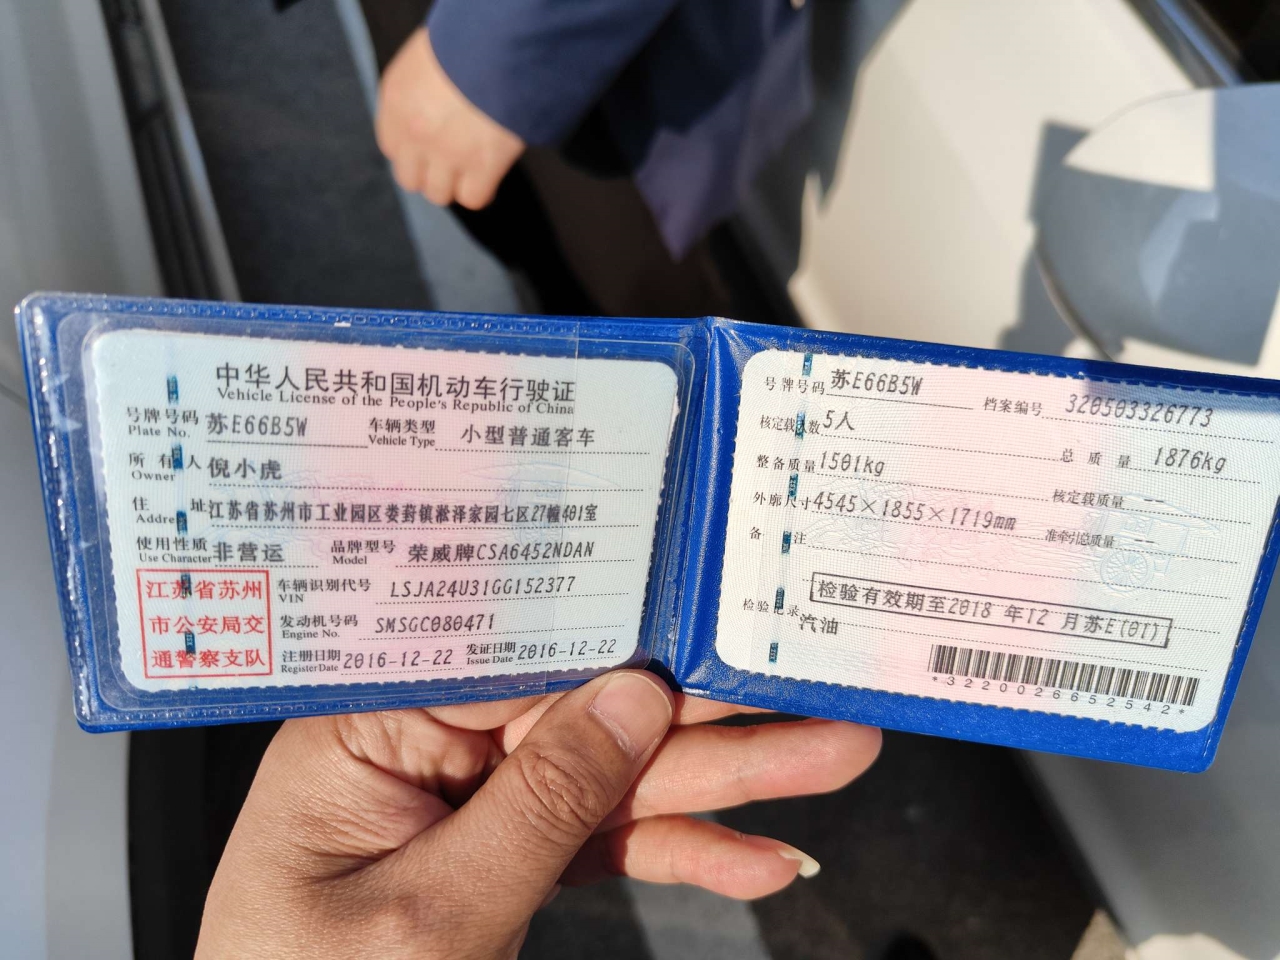 中华人民共和国机动车行驶证
Vehicle License of the People's Republic of China
号牌号码 苏E66B5W 车辆类型 小型普通客车
Plate No. Vehicle Type
所有人 倪小虎
Owner
住址 江苏省苏州市工业园区娄葑镇淞泽家园七区27幢401室
Address
使用性质 非营运 品牌型号 荣威牌CSA6452NDAN
Use Character Model
江苏省苏州市公安局交通警察支队
车辆识别代号 LSJA24U31GG152377
VIN
发动机号码 SMSGC080471
Engine No.
注册日期 2016-12-22 发证日期 2016-12-22
Register Date Issue Date
号牌号码 苏E66B5W 档案编号 320503326773
核定载人数 5人 总质量 1876kg
整备质量 1501kg 核定载质量 --
外廓尺寸 4545×1855×1719mm 准牵引总质量 --
备注
检验有效期至2018年12月苏E(01)
检验记录 汽油
*3220026652542*